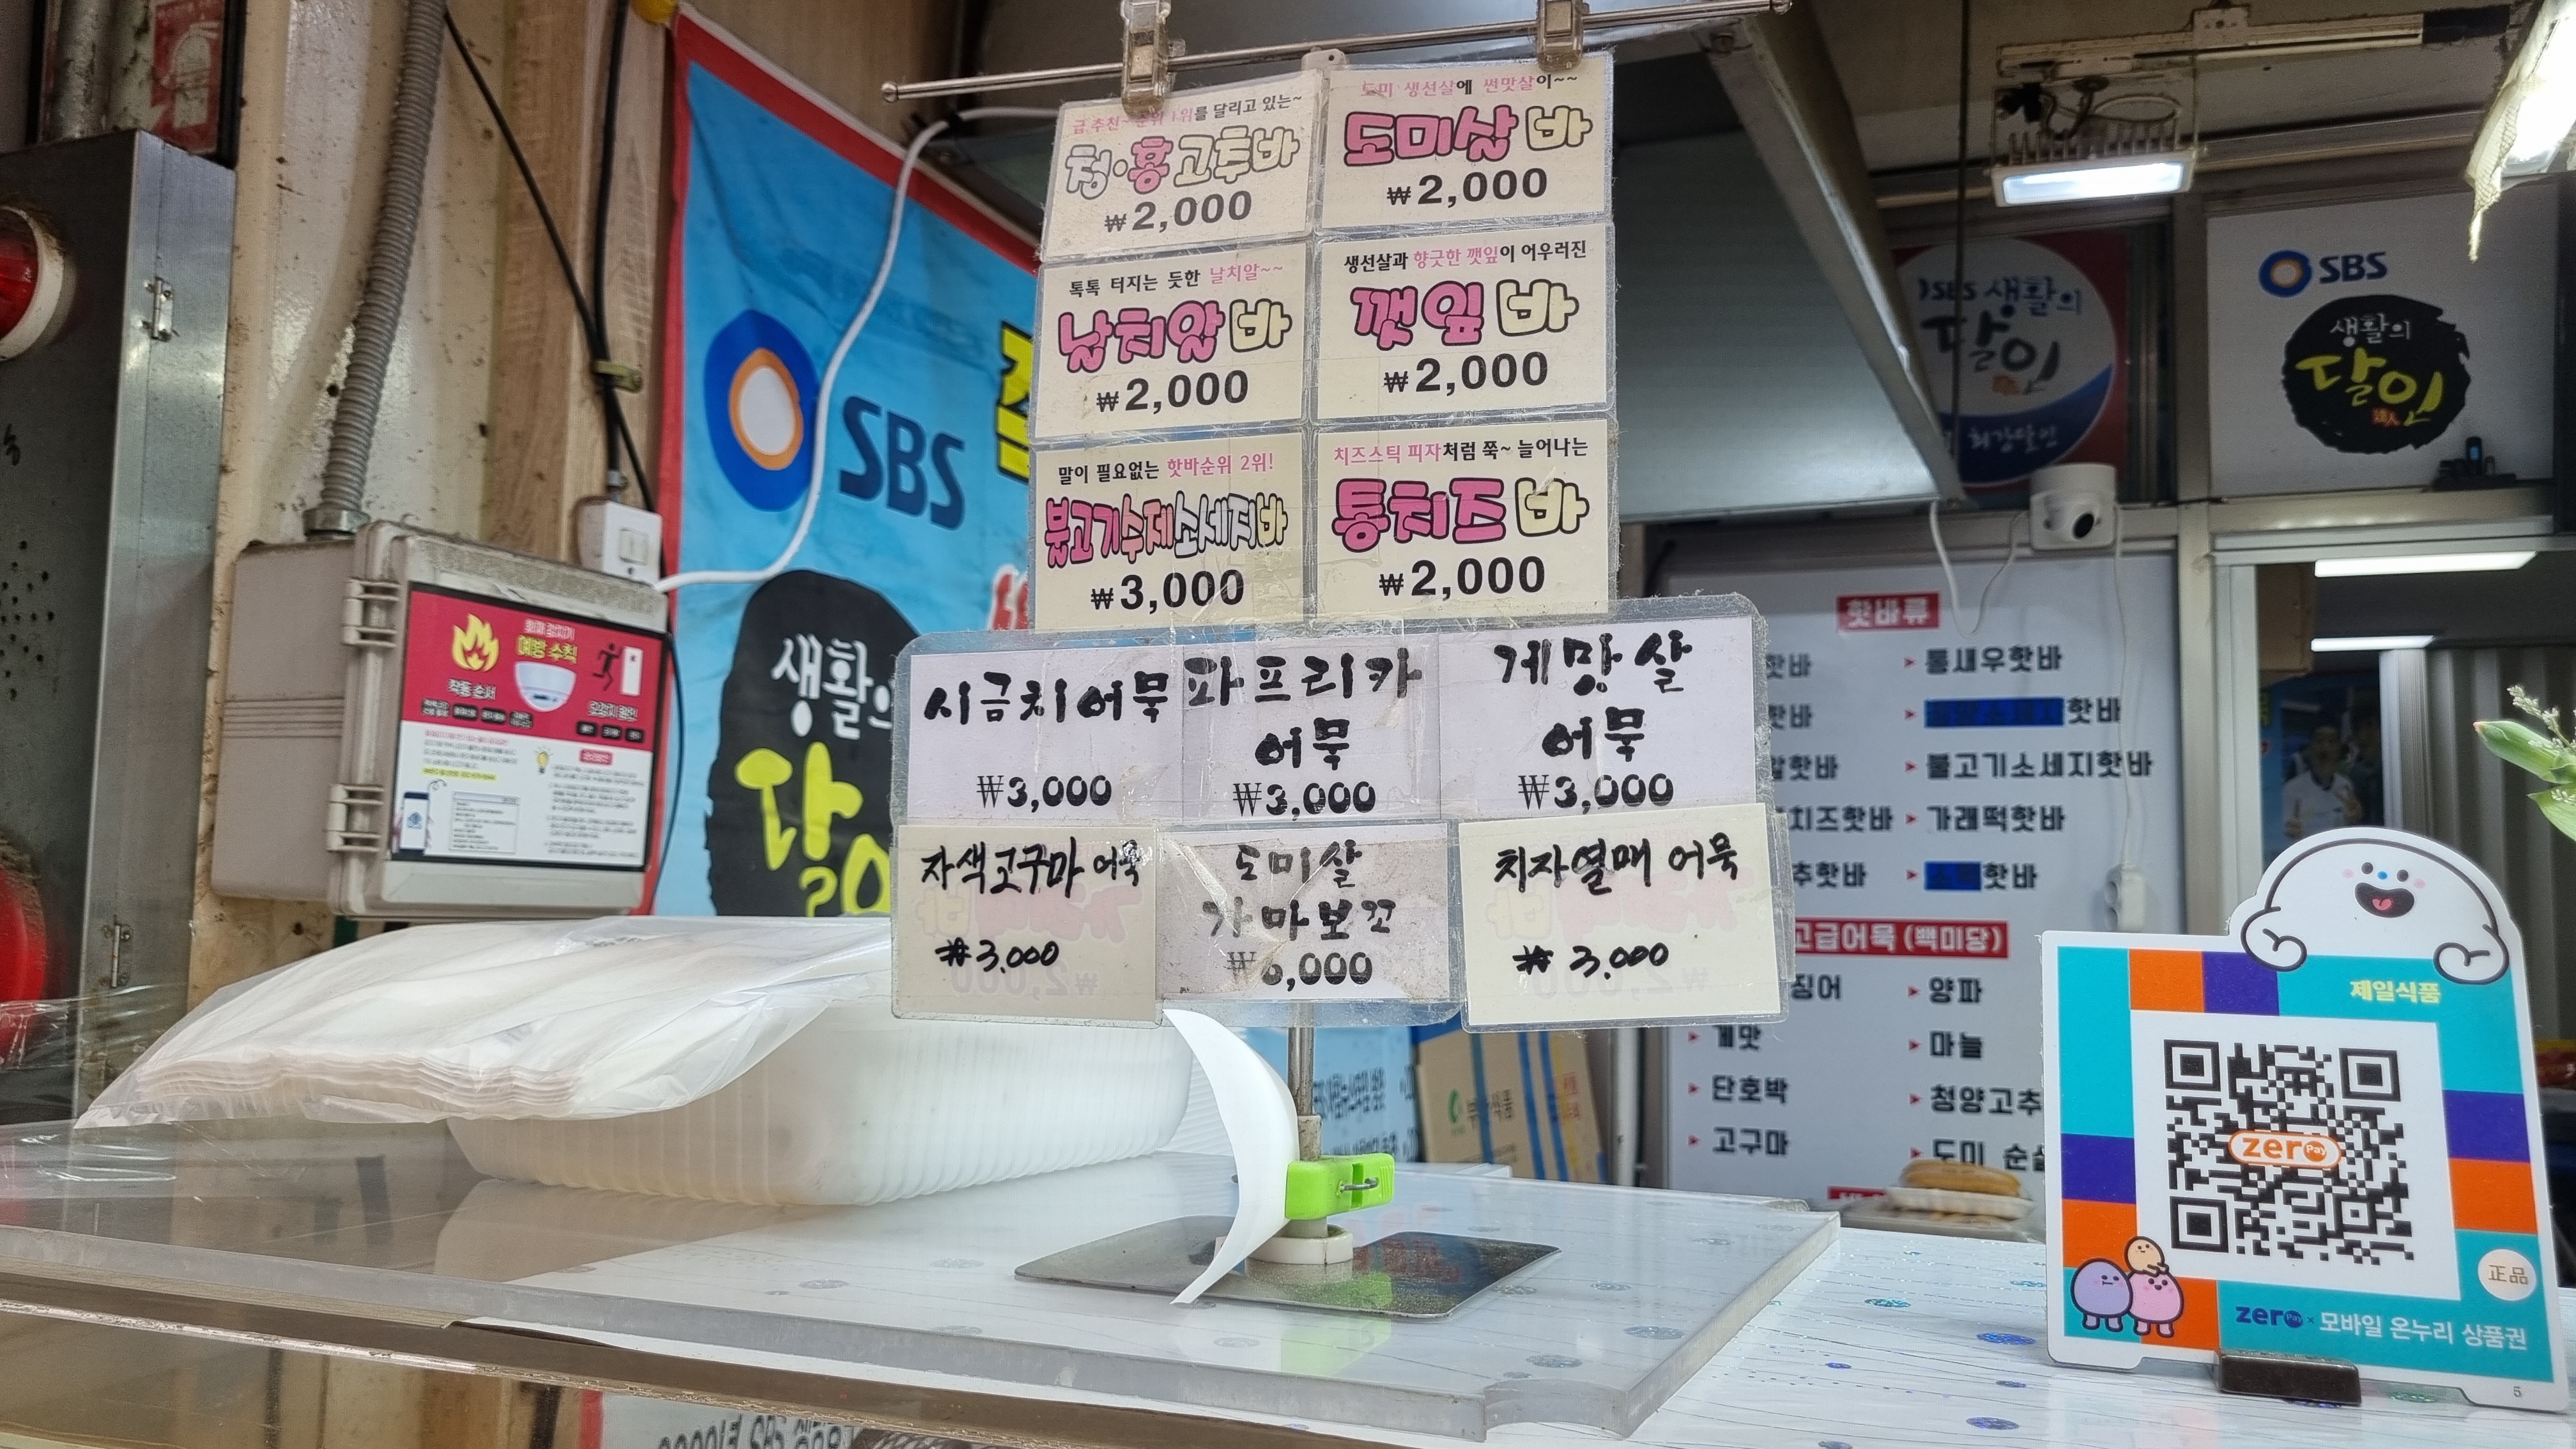 급 추천~ 순위 1위를 달리고 있는~
청·홍고추바
₩2,000
도미 생선살에 썬맛살이~~
도미살 바
₩2,000
톡톡 터지는 듯한 날치알~~
날치알 바
₩2,000
생선살과 향긋한 깻잎이 어우러진
깻잎 바
₩2,000
말이 필요없는 핫바순위 2위!
불고기수제소세지바
₩3,000
치즈스틱 피자처럼 쭉~ 늘어나는
통치즈 바
₩2,000
시금치어묵
₩3,000
파프리카
어묵
₩3,000
게맛살
어묵
₩3,000
자색고구마 어묵
₩3,000
도미살
가마보꼬
치자열매 어묵
₩3,000
SBS
생활의
달인
화재 감지기
예방 수칙
작동 순서
SBS 생활의
달인
최강달인
SBS
생활의
달인
핫바류
핫바
통새우핫바
핫바
핫바
알핫바
불고기소세지핫바
치즈핫바
가래떡핫바
추핫바
핫바
고급어묵 (백미당)
징어
양파
게맛
마늘
단호박
청양고추
고구마
도미 순살
제일식품
zero Pay
正品
zero Pay × 모바일 온누리 상품권
5